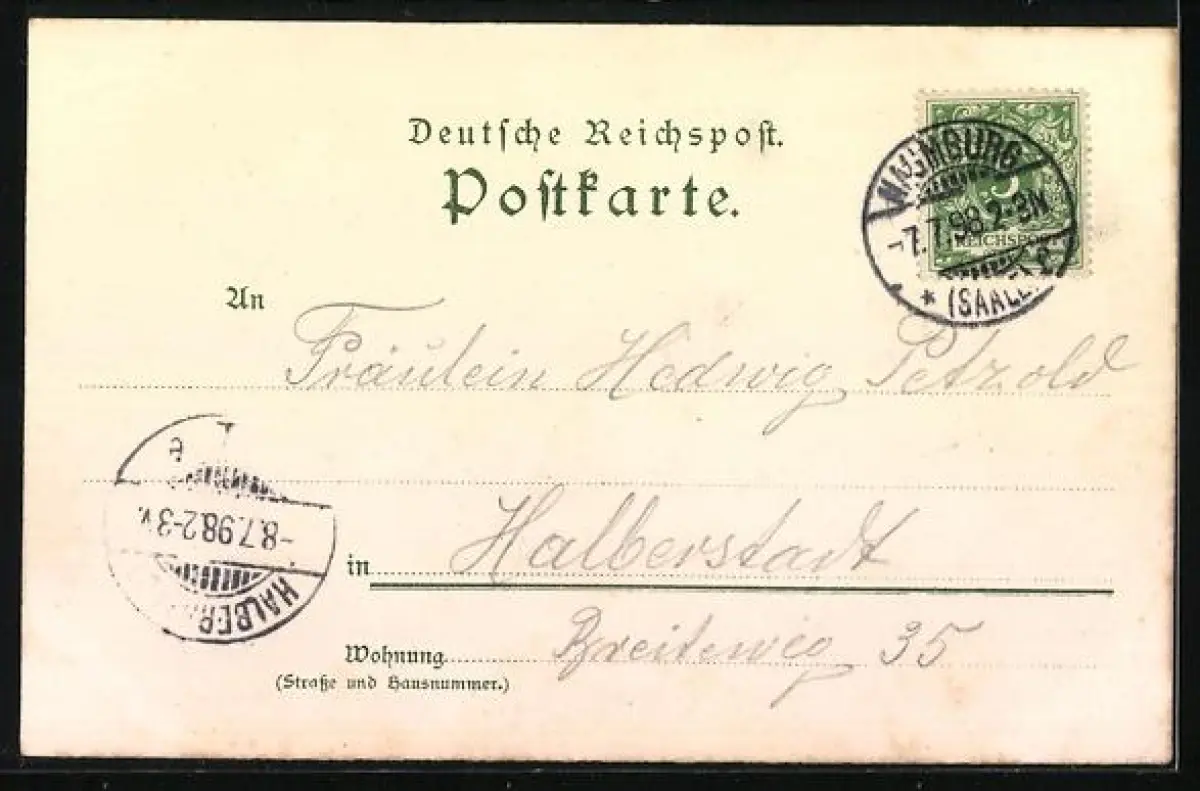 Deutsche Reichspost.
Postkarte.
NAUMBURG
7.7.98 2-3N
REICHSPOST
* (SAALE)
An
Fräulein Hedwig Petzold
-8.7.98.2-3 V.
HALBER
in Halberstadt
Wohnung Breiteweg 35
(Straße und Hausnummer.)